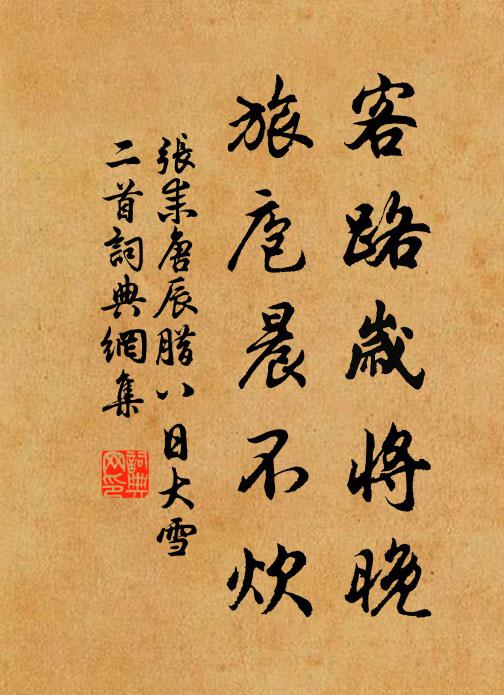 客路歲將晚
旅庖晨不炊
張耒唐辰腊八日大雪
二首詞典網集
詞典
网印